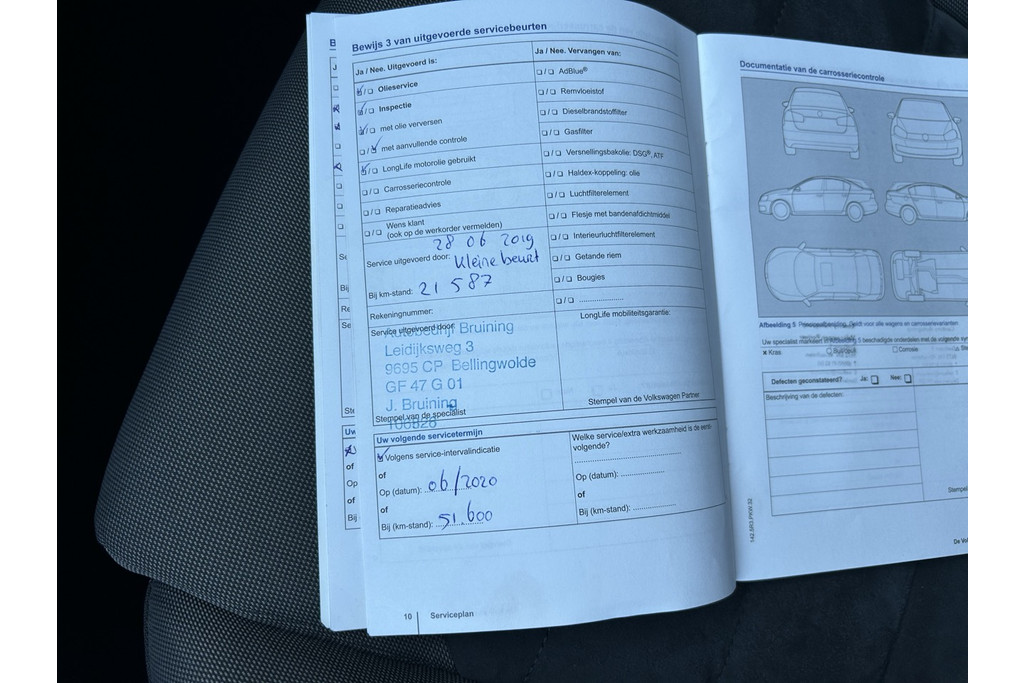 Bewijs 3 van uitgevoerde servicebeurten
Ja / Nee. Uitgevoerd is:
Olieservice
Inspectie
met olie verversen
met aanvullende controle
LongLife motorolie gebruikt
Carrosseriecontrole
Reparatieadvies
Wens klant
(ook op de werkorder vermelden)
28 06 2019
Service uitgevoerd door: Kleine beurt
Bij km-stand: 21 587
Rekeningnummer:
Service uitgevoerd door:
Autobedrijf Bruining
Leidijksweg 3
9695 CP Bellingwolde
GF 47 G 01
J. Bruining
Stempel van de specialist
Ja / Nee. Vervangen van:
AdBlue®
Remvloeistof
Dieselbrandstoffilter
Gasfilter
Versnellingsbakolie: DSG®, ATF
Haldex-koppeling: olie
Luchtfilterelement
Flesje met bandenafdichtmiddel
Interieurluchtfilterelement
Getande riem
Bougies
LongLife mobiliteitsgarantie:
Stempel van de Volkswagen Partner
Uw volgende servicetermijn
Volgens service-intervalindicatie
of
Op (datum): 06/2020
of
Bij (km-stand): 51.600
Welke service/extra werkzaamheid is de eerst-
volgende?
Op (datum):
of
Bij (km-stand):
10 | Serviceplan
B
J
Se
Bij
Re
Se
Ste
Uw
of
Op
of
Bij
Documentatie van de carrosseriecontrole
Afbeelding 5
Geldt voor alle wagens en carrosserievarianten
Uw specialist markeert in Afbeelding 5 beschadigde onderdelen met de volgende
x Kras
Defecten geconstateerd? Ja: Nee:
Beschrijving van de defecten:
Stempel
142.5R3.PKW.32
De Vol